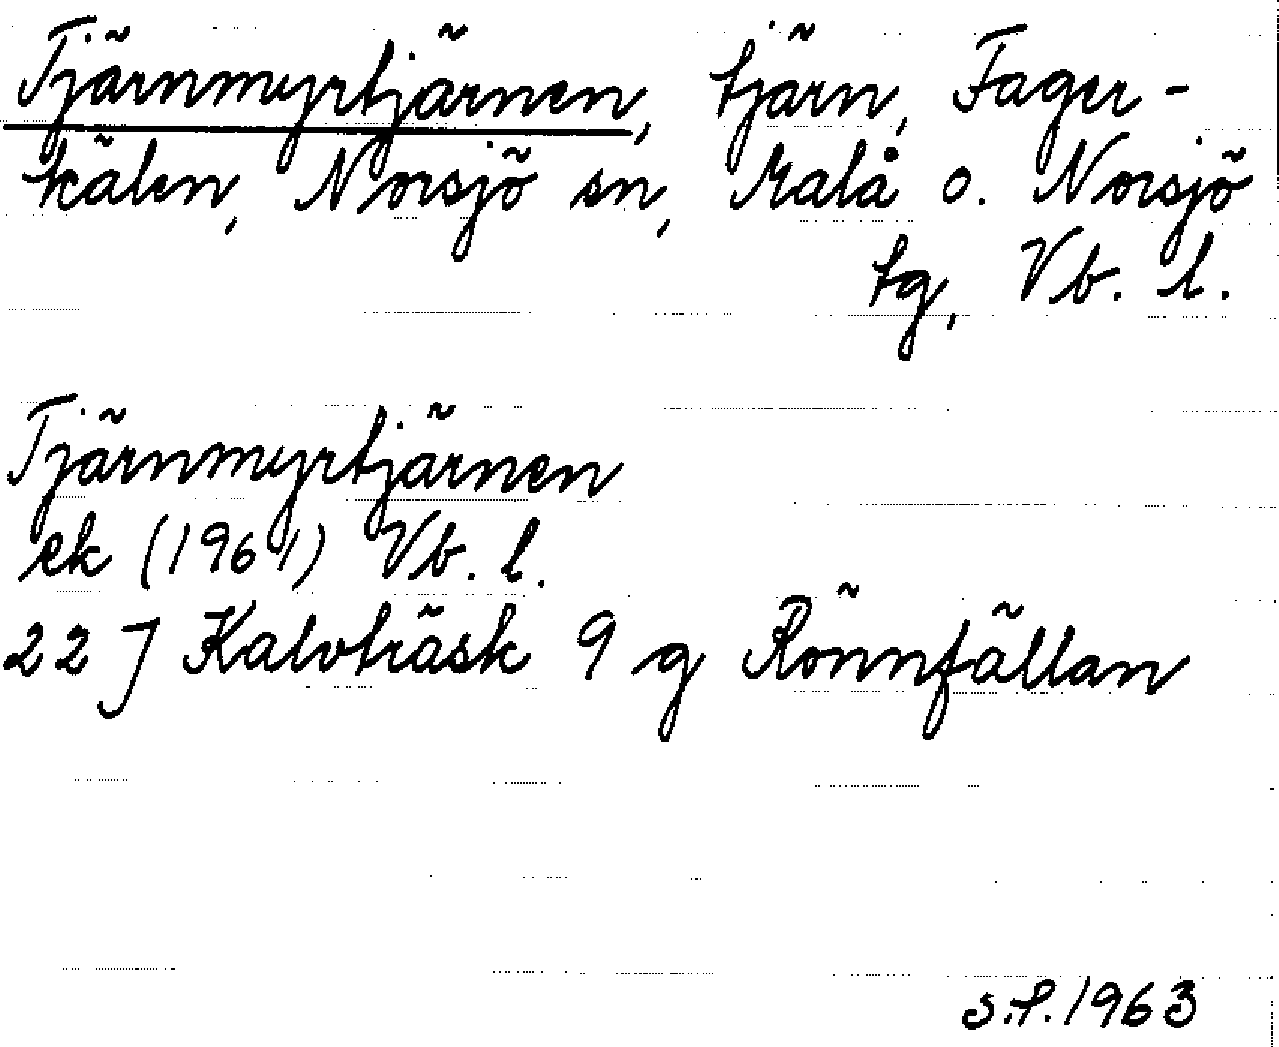 Tjärnmyrtjärnen, tjärn, Fager-
kälen, Norsjö sn, Malå o. Norsjö
tg, Vb. l.
Tjärnmyrtjärnen
ek (1961) Vb. l.
22 J Kalvträsk 9 g Rönnfällan
S.P. 1963